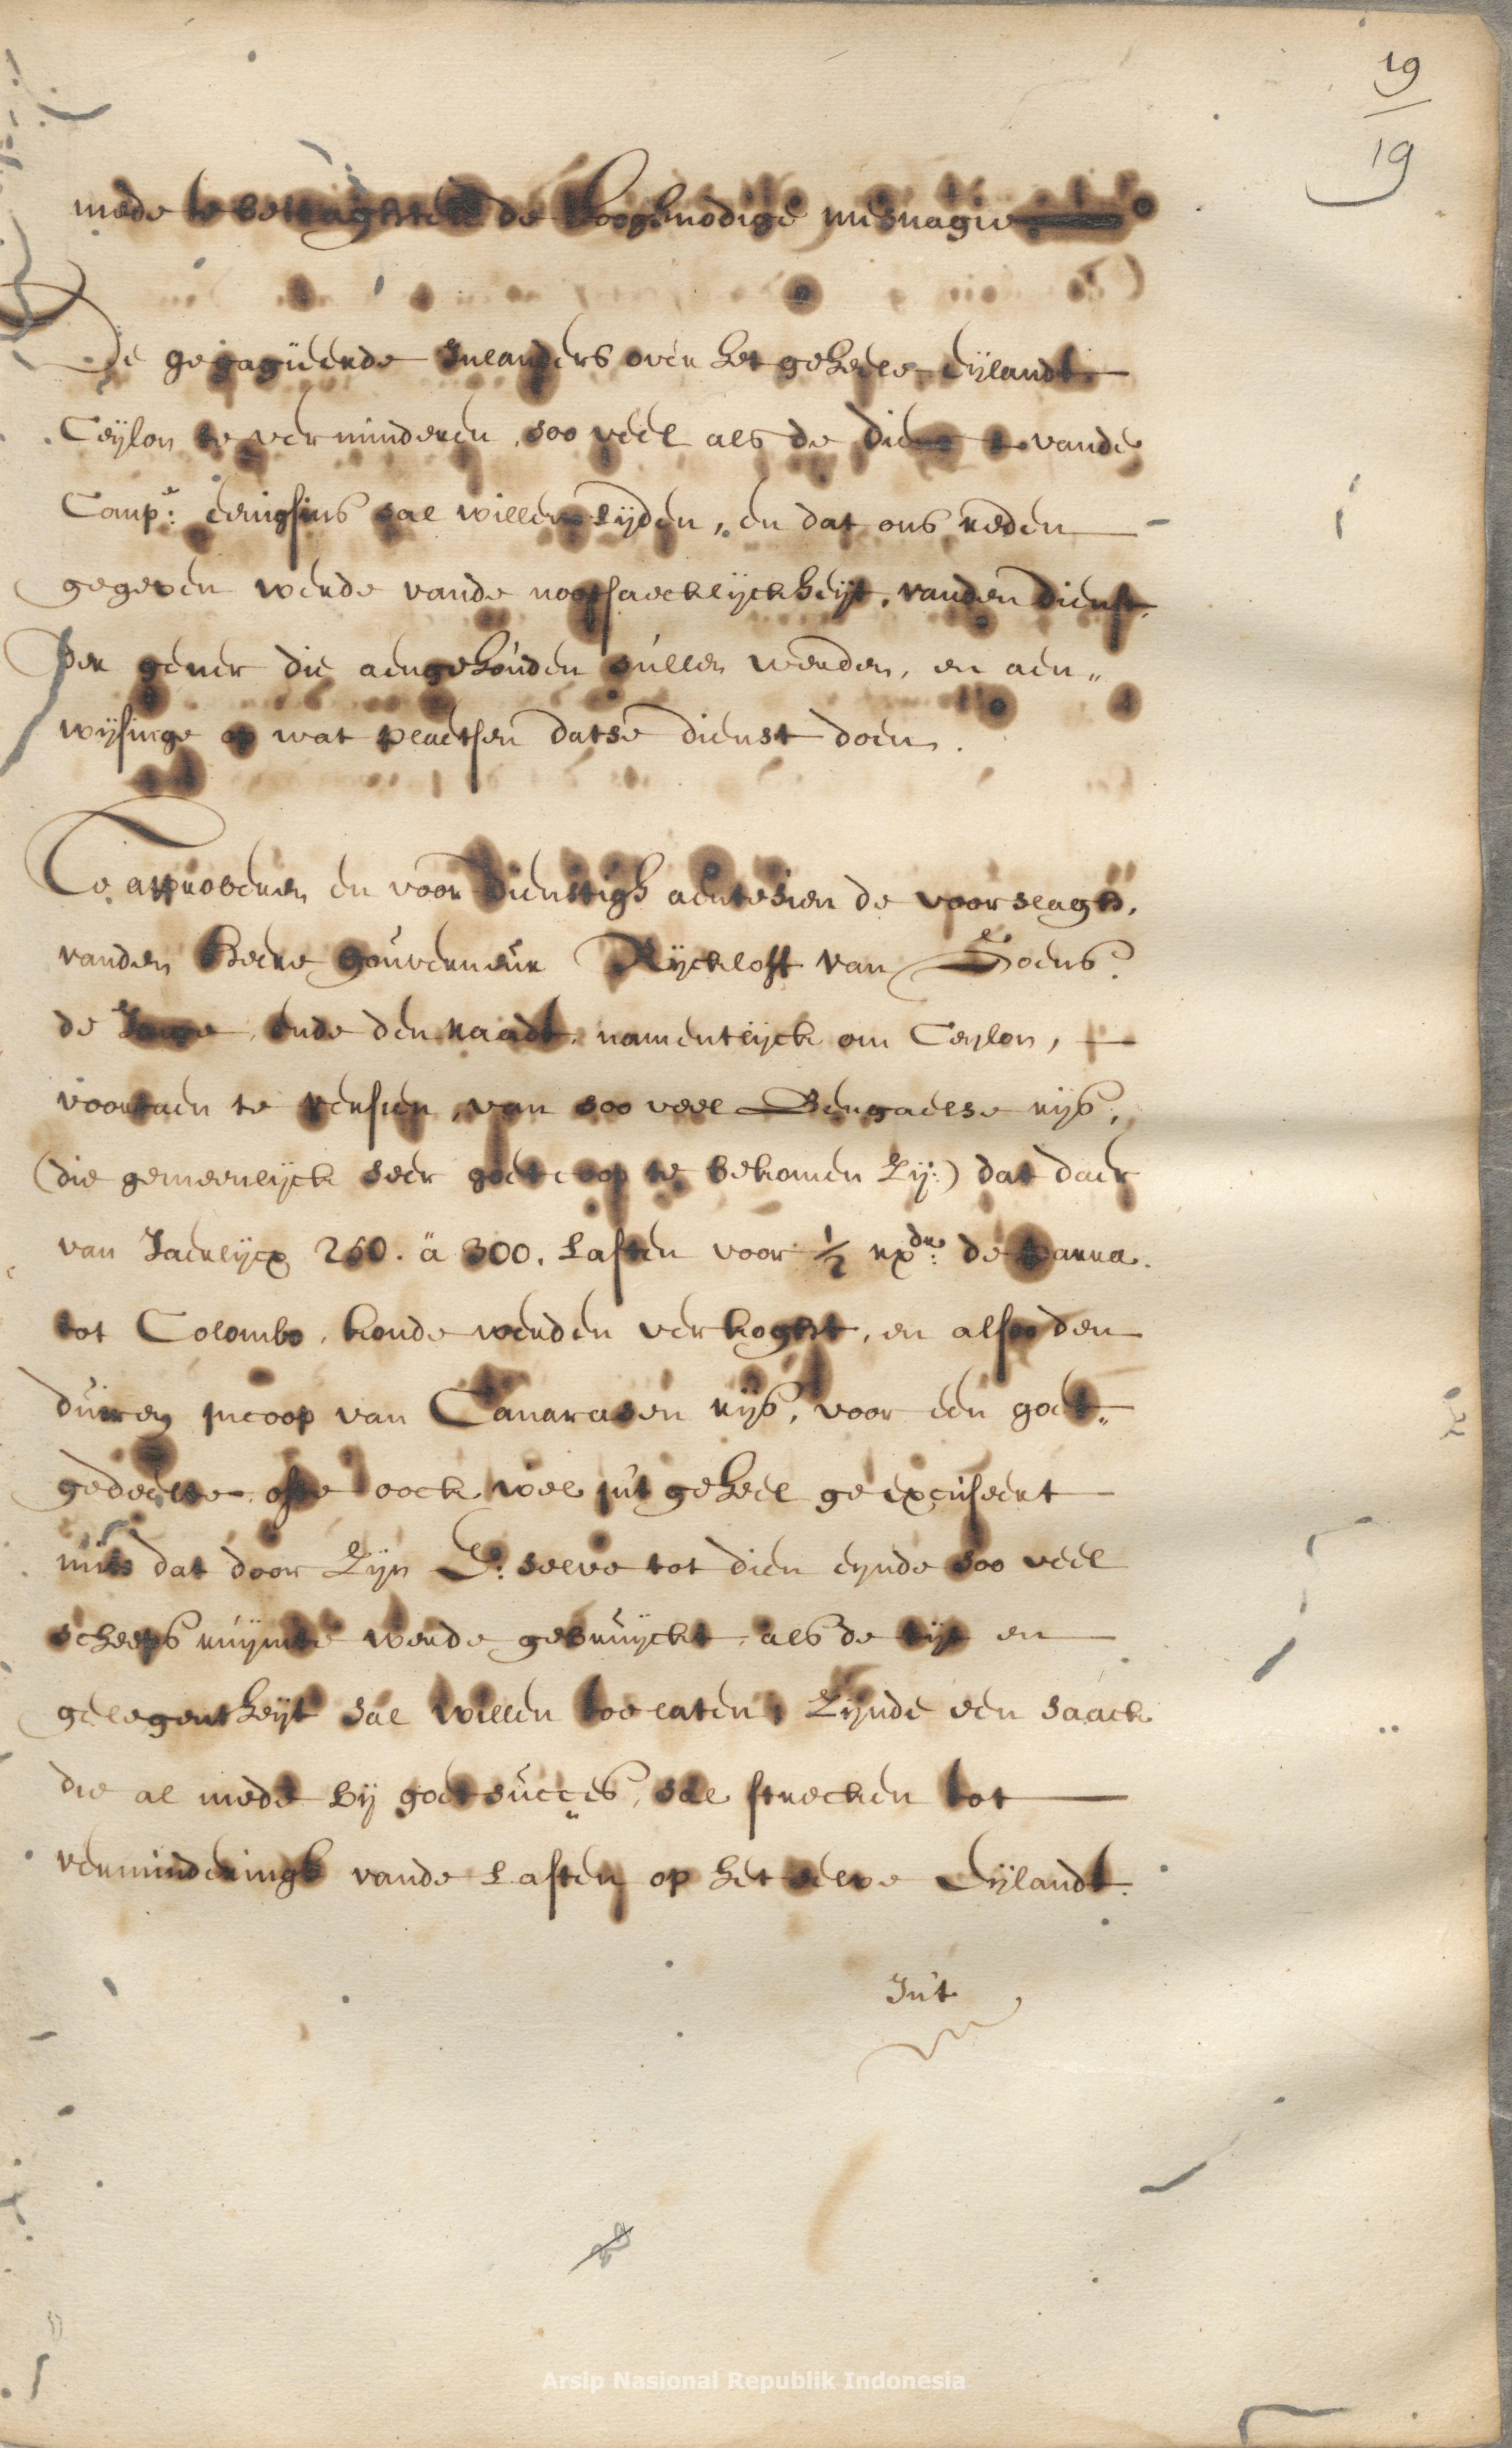 19
19
mede te betraghten de hooghnodige mesnagie
De gegagieerde Inlanders over het geheele Eijlandt
Ceijlon te verminderen, soo veel als de dienst vande
Comp:e eenighsins sal willen lijden, en dat ons reden
gegeven werde vande nootsaeckelijckheijt, vanden dienst
der gener die aengehouden sullen werden, en aen„
wijsinge op wat plaetsen datse dienst doen.
Te approberen en voor dienstigh aentesien de voorslagh,
vanden Heere gouverneur Rijckloff van Goens
de Jonge, ende den raadt, namentlijck om Ceylon,
voortaen te versien, van soo veel Bengaelse rijs,
(die gemeenlijck seer goetcoop te bekomen Zij:) dat daer
van Jaerlijcx 250. â 300. Lasten voor ½ rx:drs de parra.
tot Colombo, konde werden verkoght, en alsoo den
duiren incoop van Canarasen rijs, voor een goet„
gedeelte, ofte oock wel in't geheel geexcuseert
mits dat door Zijn E: selve tot dien eynde soo veel
scheeps ruijmte werde gebruijckt, als de tijt en
gelegentheijt sal willen toelaten, Zijnde een saack
die al mede bij goet succes, sal strecken tot
verminderingh vande Lasten op het selve Eijlandt.
In't
Arsip Nasional Republik Indonesia